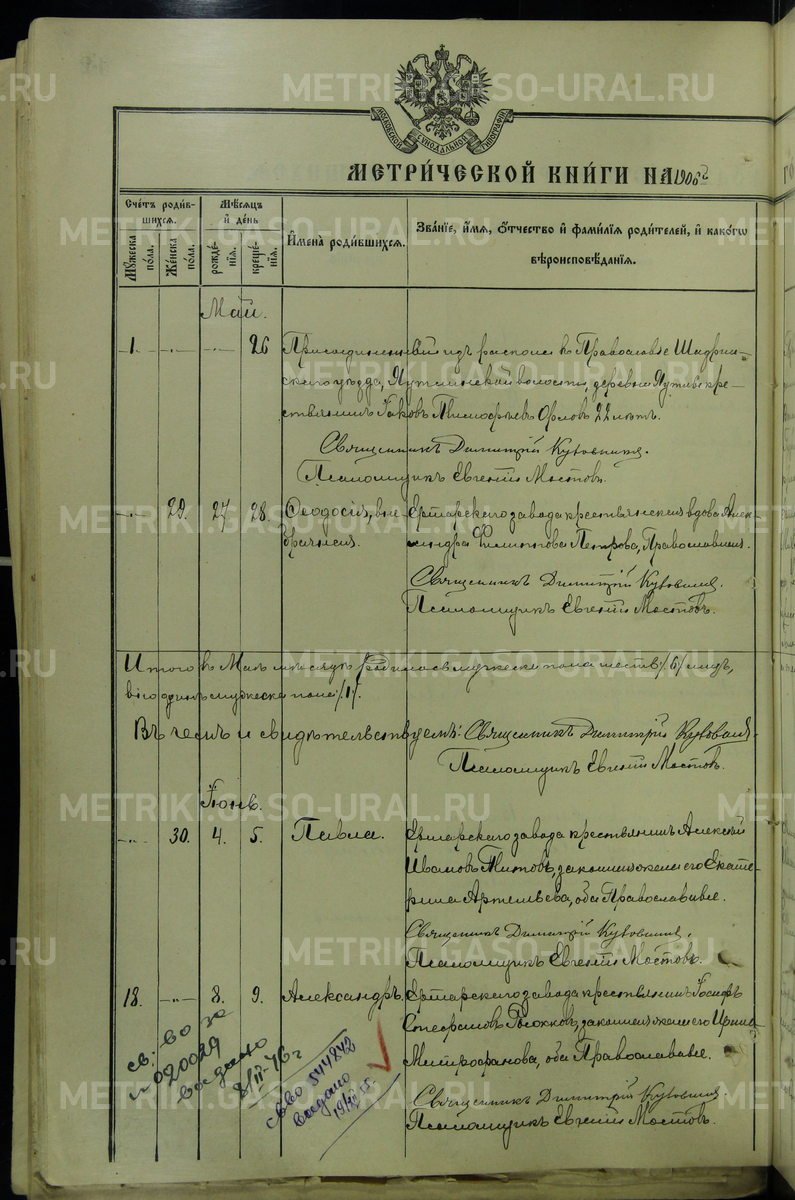 МОСКОВСКОЙ СѴНОДАЛЬНОЙ ТИПОГРАФІИ
МЕТРИ́ЧЕСКОЙ КНИ́ГИ НА 1906
Сче́тъ роди́в-
шихся.
Му́жеска по́ла.
Же́нска по́ла.
Мѣ́сяцъ
и҆ де́нь
рожде́-
нїя.
креще́-
нїя.
И҆мена̀ роди́вшихся.
Зва́нїе, и҆́мя, ѻ҆́тчество и҆ фами́лїя роди́телей, и҆ како́гѡ
вѣроисповѣ́данїя.
Май.
1. —„— —„— 26 Присоединенный изъ раскола къ Православію Шадрин-
скаго уѣзда, волости, деревни кре-
стьянинъ Іаковъ Тимофѣевъ Орловъ 22 лѣтъ.
Священникъ Димитрій
Псаломщикъ Евгеній Мостовъ.
—„— 29. 27 28. Ѳеодосія, вне- Ертарскаго завода крестьянская вдова Алек-
брачная. сандра Филиппова Петрова, Православная.
Священникъ Димитрій
Псаломщикъ Евгеній Мостовъ.
Итого въ Маѣ мѣсяцѣ родилось мужеска пола шесть /6/
одинъ мужеска пола /1/.
Въ чемъ и свидѣтельствуемъ: Священникъ Димитрій
Псаломщикъ Евгеній Мостовъ.
Іюнь.
—„— 30. 4. 5. Павла. Ертарскаго завода крестьянинъ Алексѣй
Ивановъ Титовъ, законная жена его Екате-
рина Артемьева, оба Православные.
Священникъ Димитрій
Псаломщикъ Евгеній Мостовъ.
18. —„— 8. 9. Александръ. Ертарскаго завода крестьянинъ Іосифъ
Стефановъ законная жена его Ирина
Митрофанова, оба Православные.
Священникъ Димитрій
Псаломщикъ Евгеній Мостовъ.
св-во за
№ 020029
выдано
св-во 544842
выдано
METRIKI.GASO-URAL.RU